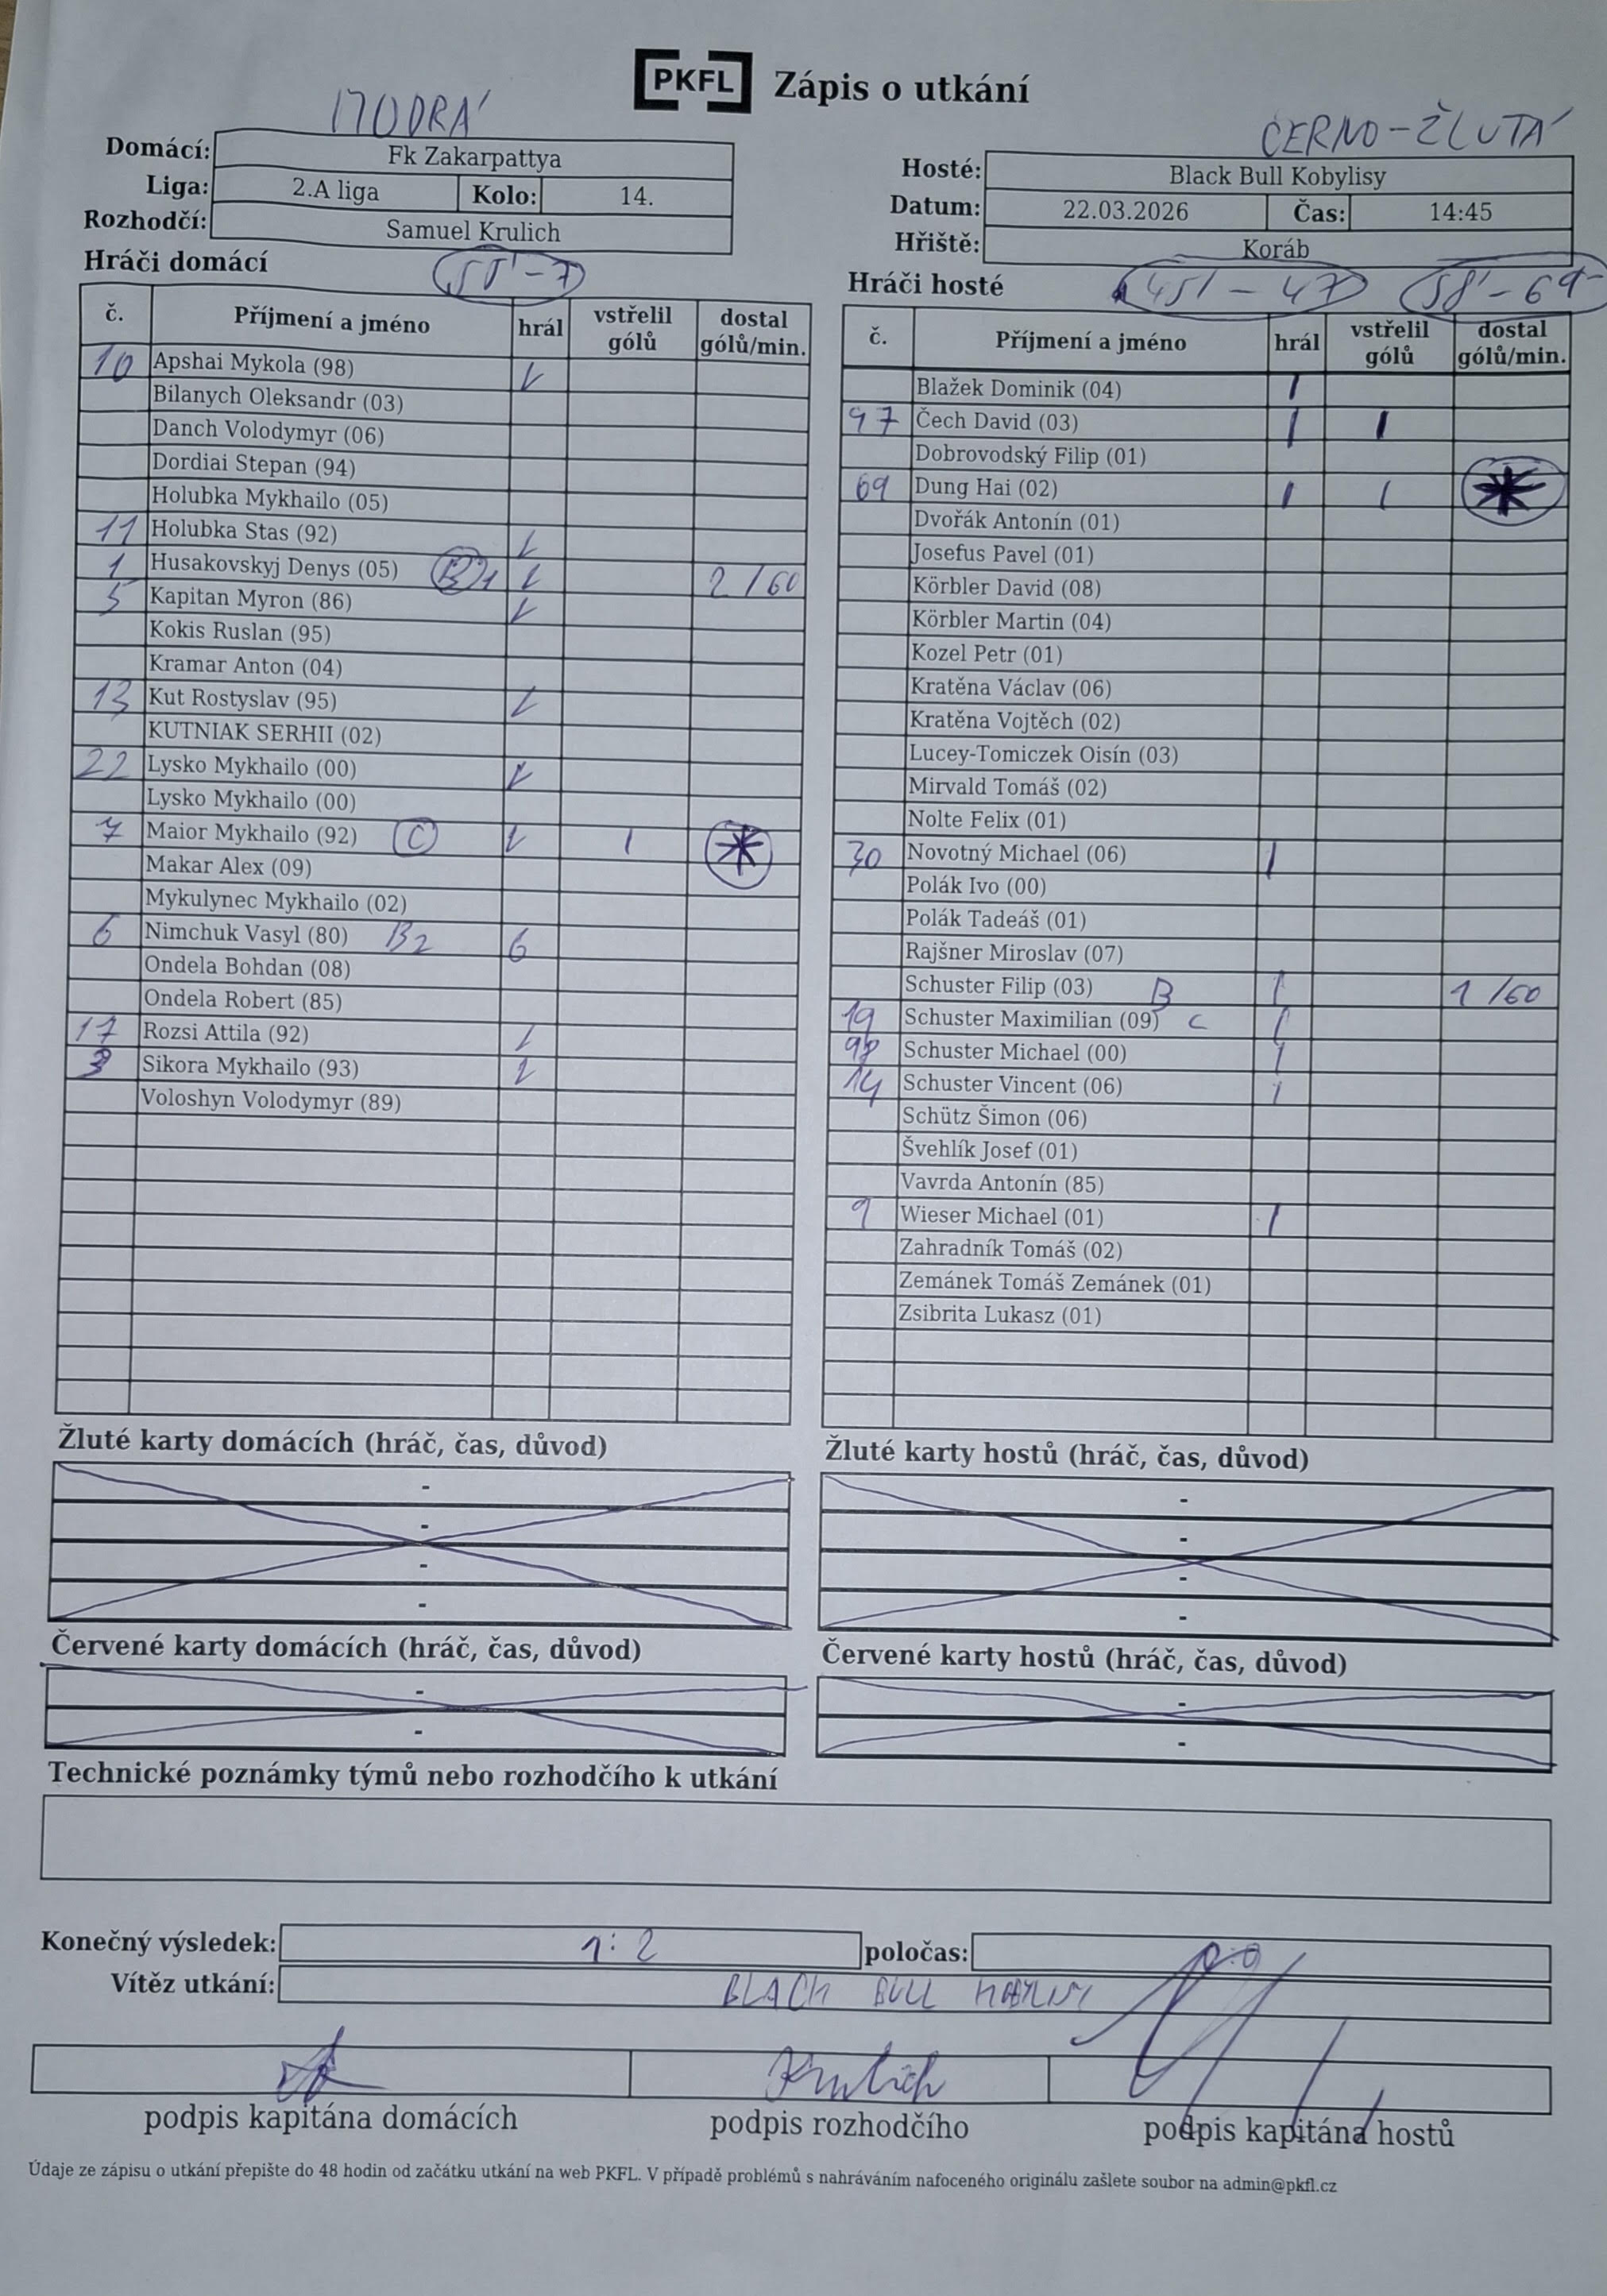 PKFL Zápis o utkání
MODRÁ
ČERNO-ŽLUTÁ
Domácí: Fk Zakarpattya
Liga: 2.A liga Kolo: 14.
Rozhodčí: Samuel Krulich
Hosté: Black Bull Kobylisy
Datum: 22.03.2026 Čas: 14:45
Hřiště: Koráb
Hráči domácí 55' - 7
č. Příjmení a jméno hrál vstřelil gólů dostal gólů/min.
10 Apshai Mykola (98)
Bilanych Oleksandr (03)
Danch Volodymyr (06)
Dordiai Stepan (94)
Holubka Mykhailo (05)
11 Holubka Stas (92)
1 Husakovskyj Denys (05) B1 2 / 60
5 Kapitan Myron (86)
Kokis Ruslan (95)
Kramar Anton (04)
13 Kut Rostyslav (95)
KUTNIAK SERHII (02)
22 Lysko Mykhailo (00)
Lysko Mykhailo (00)
7 Maior Mykhailo (92) C 1 *
Makar Alex (09)
Mykulynec Mykhailo (02)
6 Nimchuk Vasyl (80) B2 6
Ondela Bohdan (08)
Ondela Robert (85)
17 Rozsi Attila (92)
3 Sikora Mykhailo (93)
Voloshyn Volodymyr (89)
Hráči hosté 45' - 47 58' - 69
č. Příjmení a jméno hrál vstřelil gólů dostal gólů/min.
Blažek Dominik (04) 1
97 Čech David (03) 1 1
Dobrovodský Filip (01)
69 Dung Hai (02) 1 1 *
Dvořák Antonín (01)
Josefus Pavel (01)
Körbler David (08)
Körbler Martin (04)
Kozel Petr (01)
Kratěna Václav (06)
Kratěna Vojtěch (02)
Lucey-Tomiczek Oisín (03)
Mirvald Tomáš (02)
Nolte Felix (01)
30 Novotný Michael (06) 1
Polák Ivo (00)
Polák Tadeáš (01)
Rajšner Miroslav (07)
Schuster Filip (03) B 1 1 /60
19 Schuster Maximilian (09) C 1
98 Schuster Michael (00) 1
14 Schuster Vincent (06) 1
Schütz Šimon (06)
Švehlík Josef (01)
Vavrda Antonín (85)
9 Wieser Michael (01) 1
Zahradník Tomáš (02)
Zemánek Tomáš Zemánek (01)
Zsibrita Lukasz (01)
Žluté karty domácích (hráč, čas, důvod)
-
-
-
-
Žluté karty hostů (hráč, čas, důvod)
-
-
-
-
Červené karty domácích (hráč, čas, důvod)
-
-
Červené karty hostů (hráč, čas, důvod)
-
-
Technické poznámky týmů nebo rozhodčího k utkání
Konečný výsledek: 1:2 poločas: 0:0
Vítěz utkání: BLACK BULL
Krulich
podpis kapitána domácích podpis rozhodčího podpis kapitána hostů
Údaje ze zápisu o utkání přepište do 48 hodin od začátku utkání na web PKFL. V případě problémů s nahráváním nafoceného originálu zašlete soubor na admin@pkfl.cz